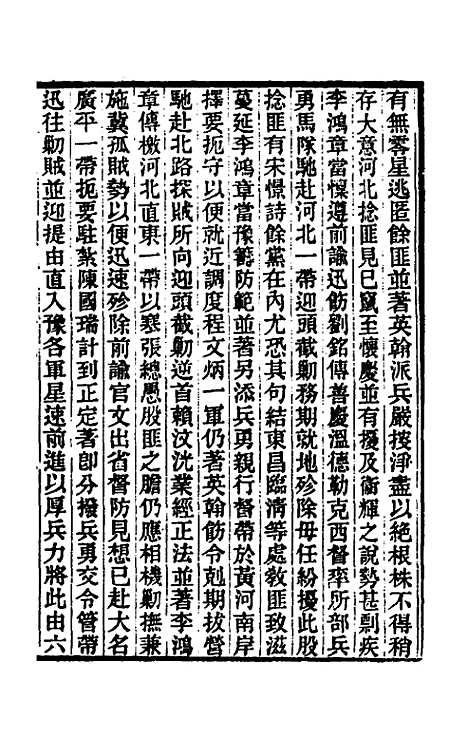 有無零星逃匿餘匪並著英翰派兵嚴搜淨盡以絕根株不得稍
存大意河北捻匪見已竄至懷慶並有擾及衞輝之說勢甚剽疾
李鴻章當懍遵前諭迅飭劉銘傳善慶溫德勒克西督率所部兵
勇馬隊馳赴河北一帶迎頭截勦務期就地殄除毋任紛擾此股
捻匪有宋憬詩餘黨在內尤恐其句結東昌臨淸等處敎匪致滋
蔓延李鴻章當豫籌防範並著另添兵勇親行督帶於黃河南岸
擇要扼守以便就近調度程文炳一軍仍著英翰飭令剋期拔營
馳赴北路探賊所向迎頭截勦逆首賴汶洸業經正法並著李鴻
章傳檄河北直東一帶以褰張總愚股匪之膽仍應相機勦撫兼
施冀孤賊勢以便迅速殄除前諭官文出省督防見想已赴大名
廣平一帶扼要駐紮陳國瑞計到正定著卽分撥兵勇交令管帶
迅往勦賊並迎提由直入豫各軍星速前進以厚兵力將此由六